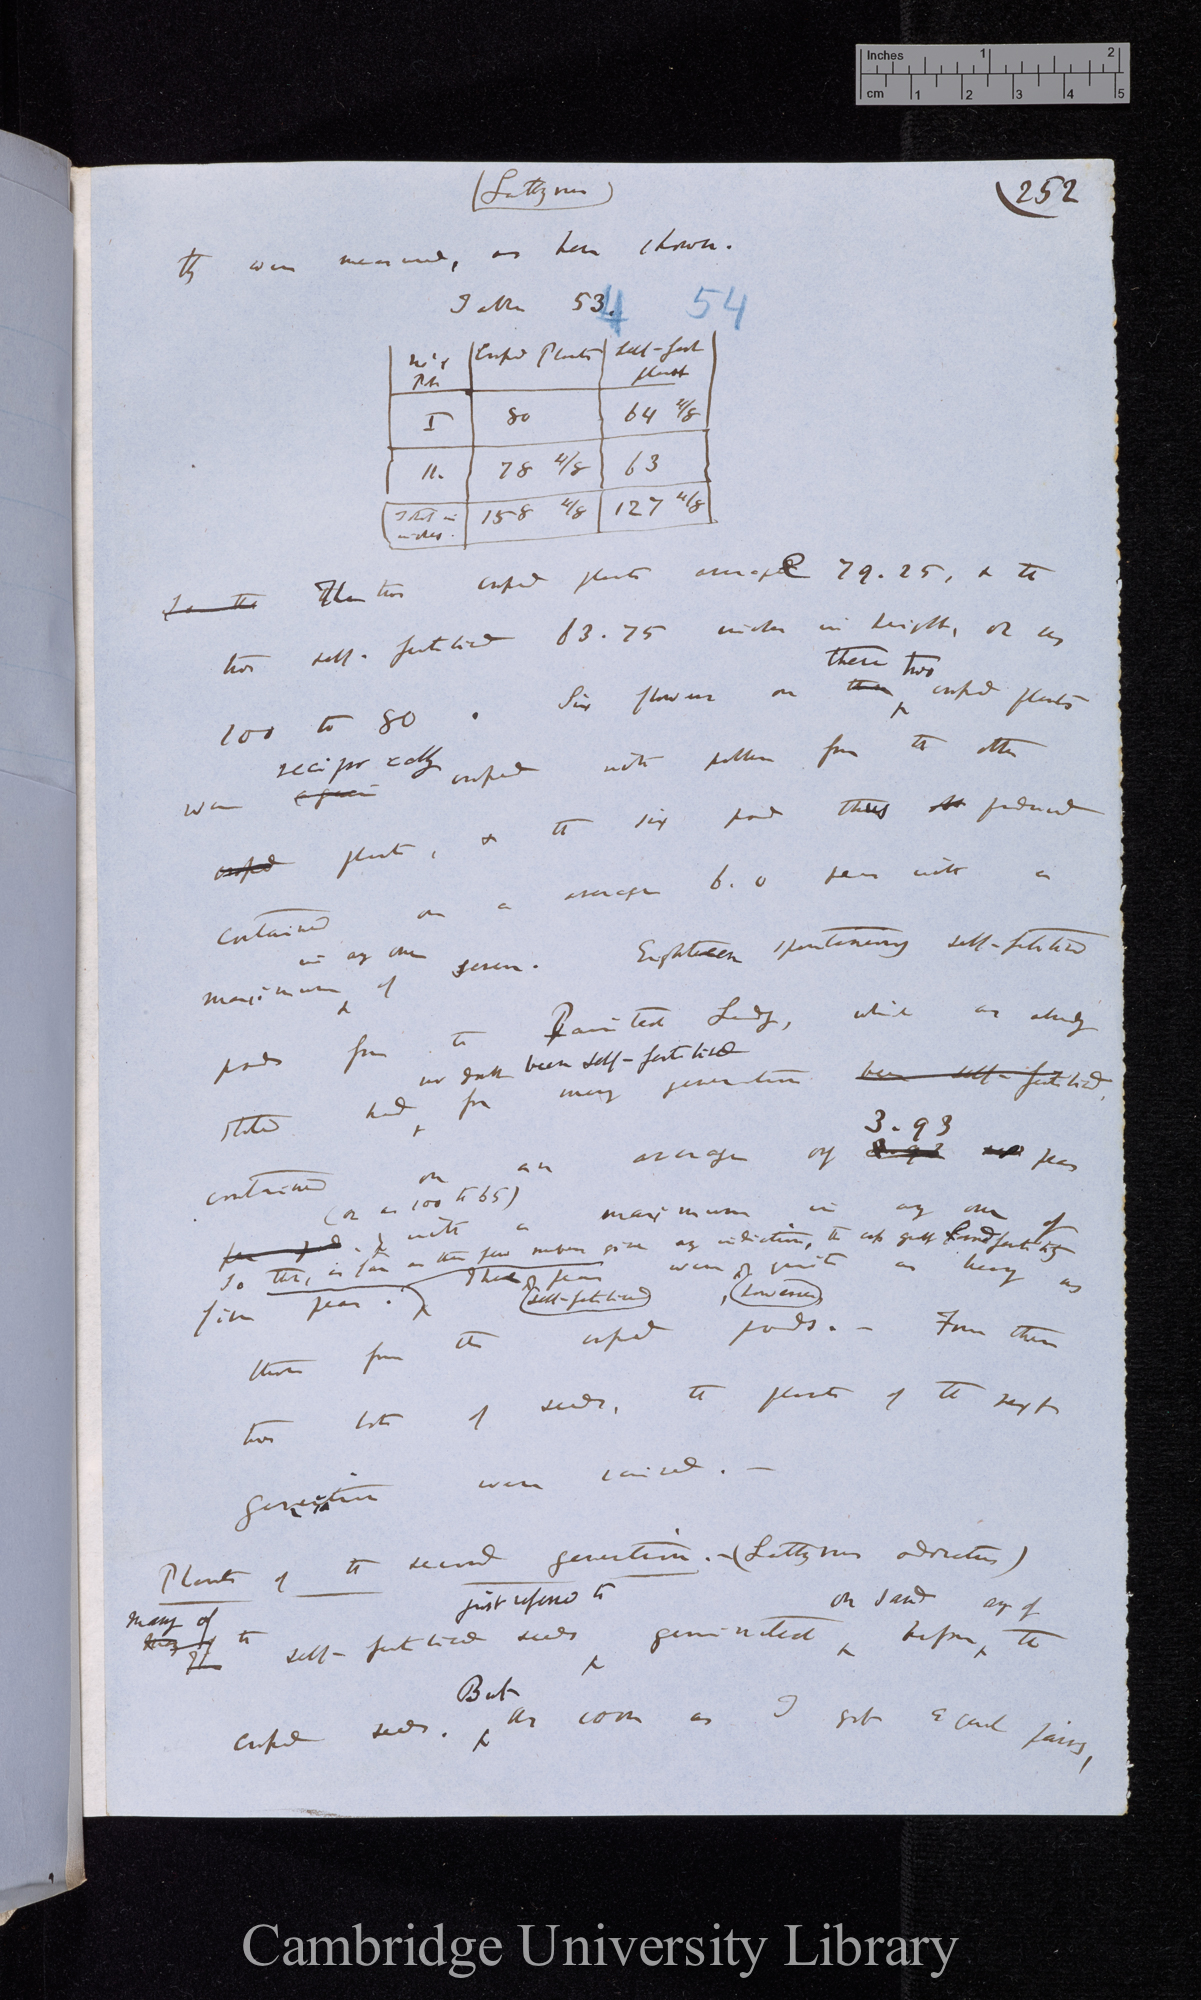 Inches 1 2
cm 1 2 3 4 5
(Lathyrus)
252
they were measured, as here shown.
Table 53. 4 54
No. of Pot Crossed Plants Self-fert plants
I 80 64 4/8
II. 78 4/8 63
Total in inches. 158 4/8 127 4/8
The two crossed plants average 79.25, & the
two self-fertilised 63.75 inches in height, or as
these two
100 to 80. Six flowers on these crossed plants
reciprocally
were again crossed with pollen from the other
crossed plant, & the six pods thus produced
contained on an average 6.0 peas with a
in any one
maximum of seven. Eighteen spontaneously self-fertilised
pods from the Painted Lady, which as already
no doubt been self-fertilised
stated had for many generations been self-fertilised,
3.93
contained on an average of peas
(or as 100 to 65)
with a maximum in any one of
So that, as far as these few numbers give any indication, the crossed fertility
five peas. These peas were quite as heavy as
self-fertilised however
those from the crossed pods. — From these
two lots of seeds, the plants of the next
generation were raised. —
Plants of the second generation. — (Lathyrus odoratus)
many of just referred to on sand any of
the self-fertilised seeds germinated before the
But
crossed seeds. As soon as I got equal pairs,
Cambridge University Library